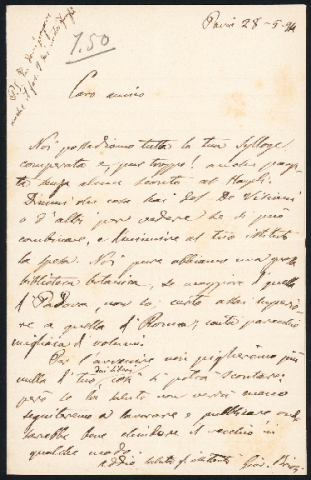 7.50
Pavia 28-5-94
Caro amico
Noi possediamo tutta la tua Sylloge
comperata e, pur troppo! anche paga-
ta senza alcun sconto al
Dimmi che cosa hai del De Visiani
o d'altri per vedere se si può
combinare, e diminuire al tuo istituto
la spesa. Noi pure abbiamo una
biblioteca botanica, se maggiore di quella
di Padova, non lo so, certo assai superio-
re a quella di Roma, conta parecchie
migliaia di volumi.
Per l'avvenire noi piglieremo più
nulla di tuo, così si potrà scontare:
dai librai
però la tua salute non verrà manco
seguiteremo a lavorare e pubblicare onde
sarebbe bene chiudere il vecchio in
qualche modo.
Addio saluti
Giov. Briosi